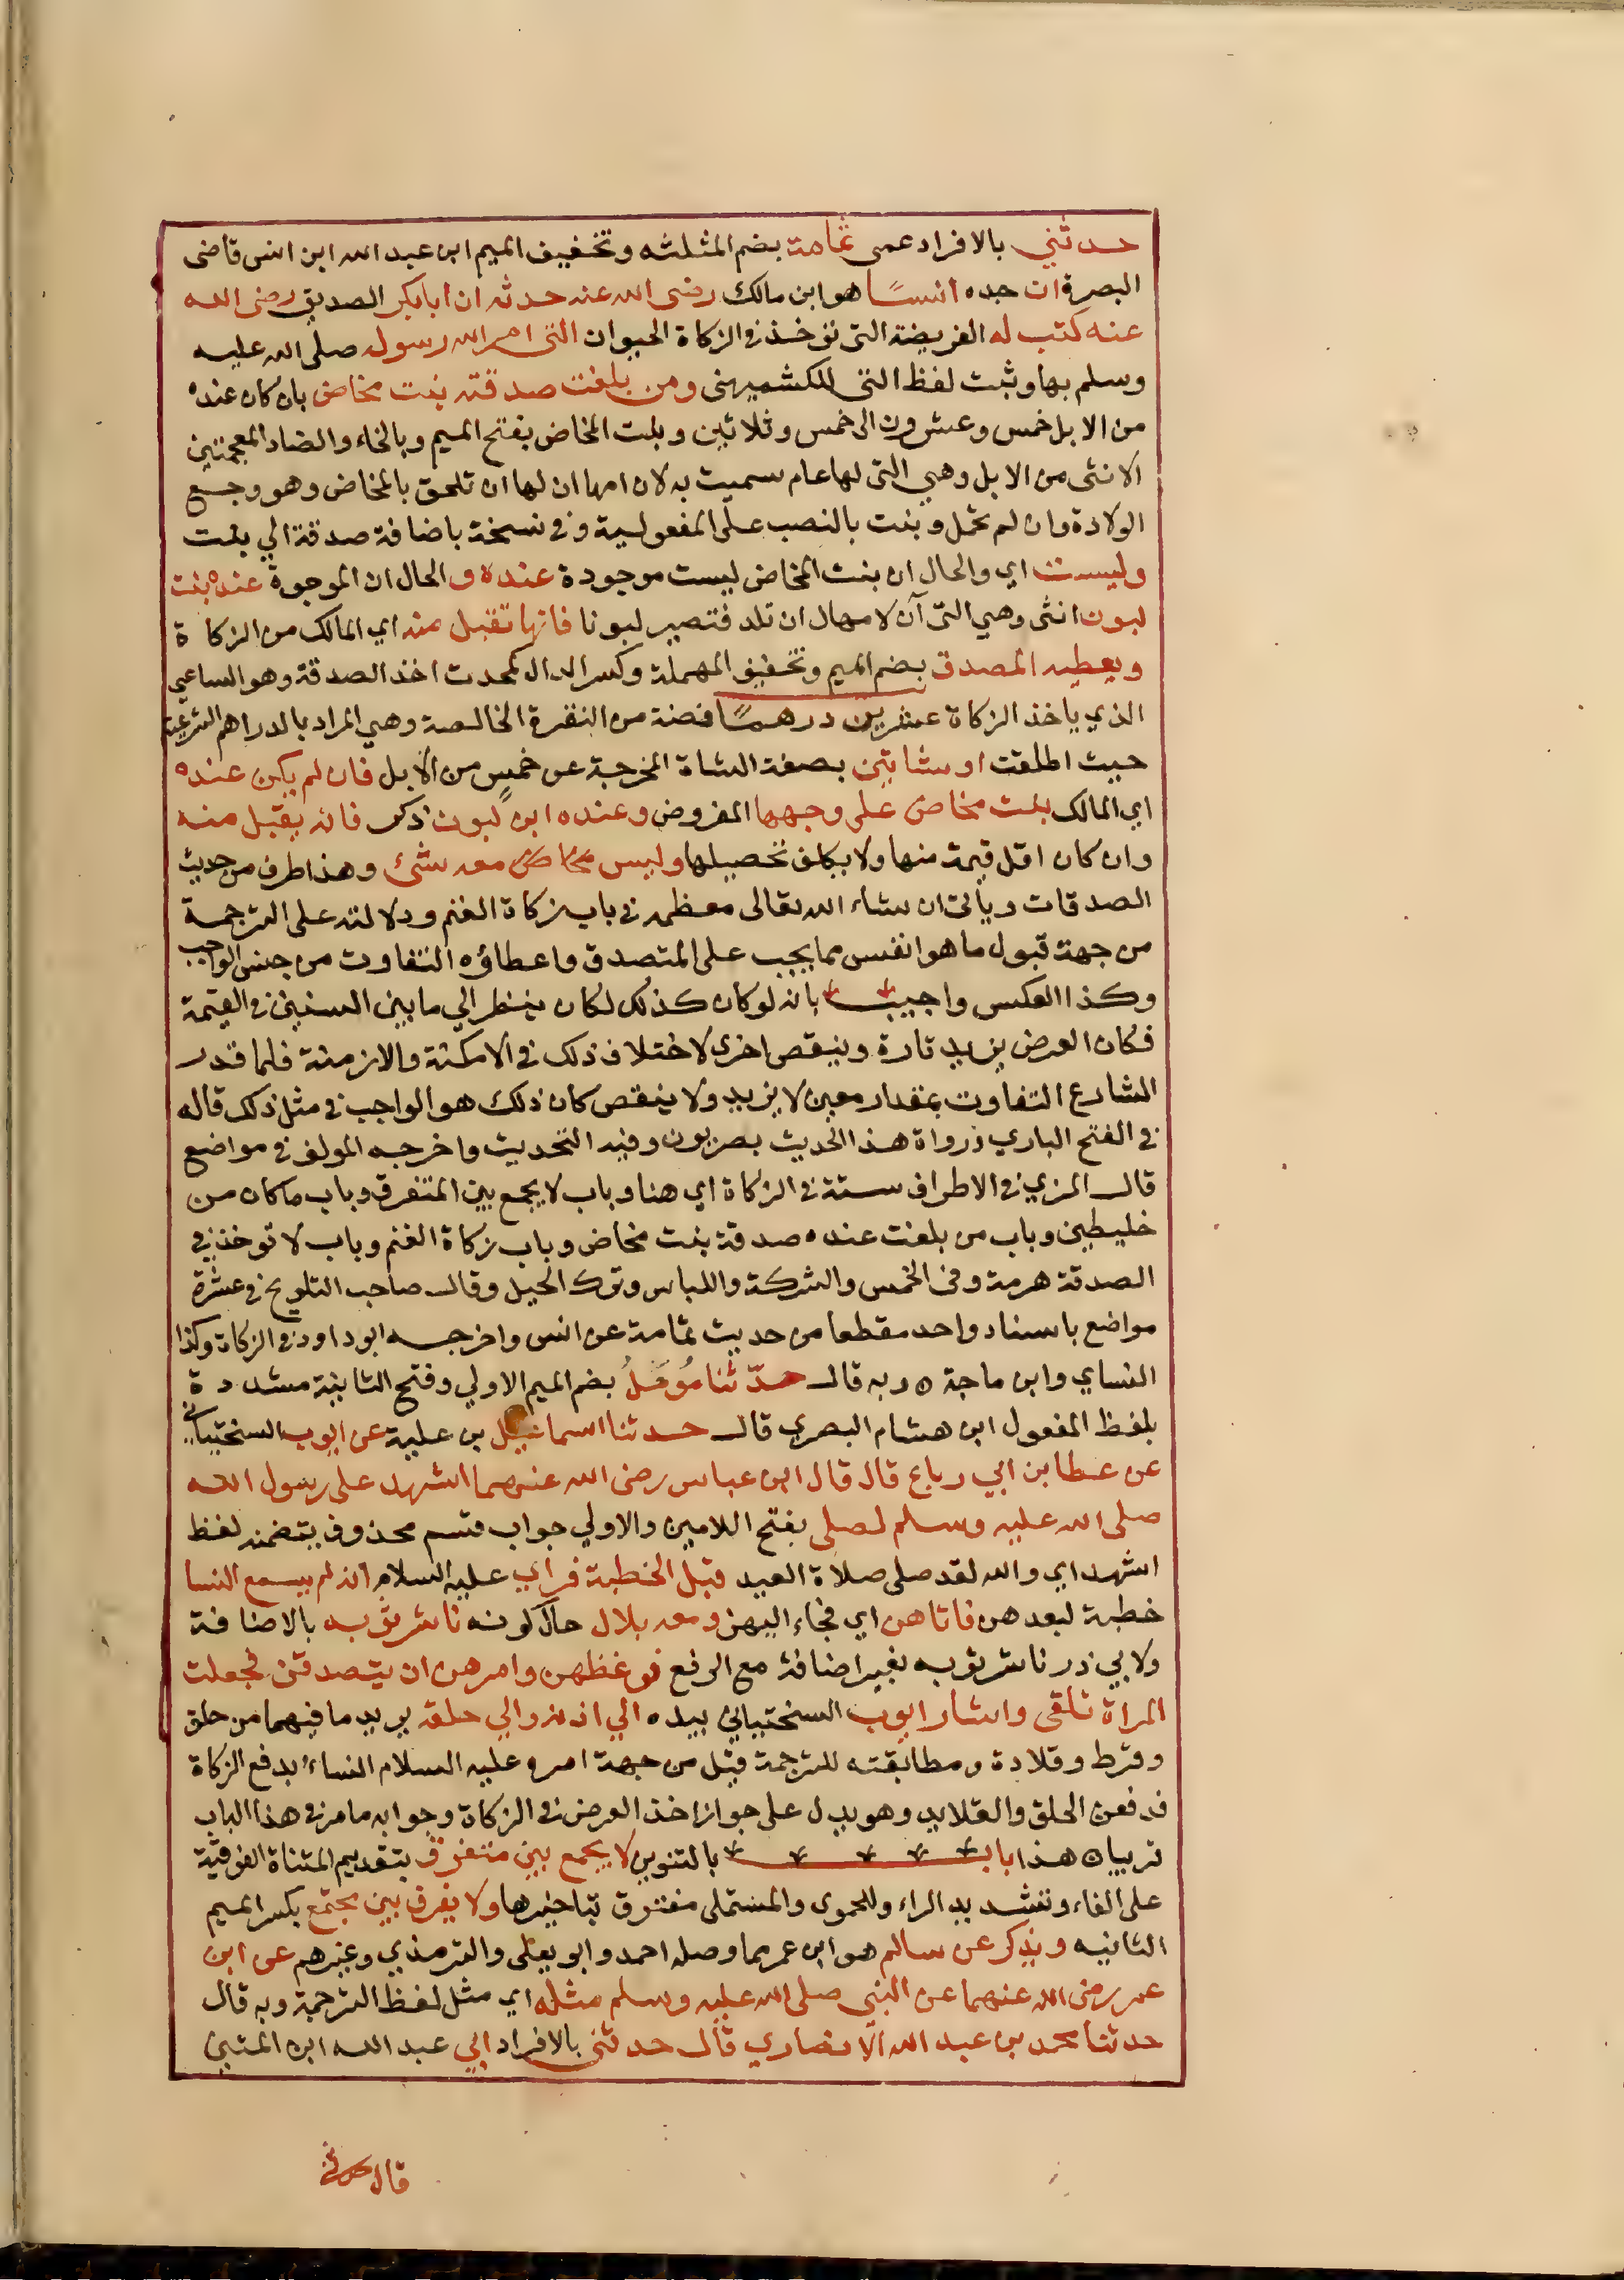 حدثني بالافراد عمى ثمامة بضم المثلثه وتخفيف الميم ابن عبد الله ابن انس قاضى
البصرة ان جده انسًا هو ابن مالك رضى الله عنه حدثه ان ابا بكر الصديق رضى الله
عنه كتب له الفريضة التى تؤخذ في الزكاة الحيوان التى امر الله رسوله صلى الله عليه
وسلم بها وثبت لفظ التى للكشميهنى ومن بلغت صدقته بنت مخاض بان كان عنده
من الابل خمس وعشرون الى خمس وثلاثين وبنت المخاض بفتح الميم وبالخاء والضاد المعجمتين
الانثى من الابل وهي التى لها عام سميت به لان امها ان لها ان تلحق بالمخاض وهو وجع
الولادة وان لم تحمل وبنت بالنصب على المفعولية وفي نسخة باضافة صدقة الي بنت
وليست اي والحال ان بنت المخاض ليست موجودة عنده و الحال ان الموجودة عنده بنت
لبون انثى وهي التى آن لامها ان تلد فتصير لبونا فانها تقبل منه اي المالك من الزكاة
ويعطيه المصدق بضم الميم وتخفيف المهملة وكسر الدال كمحدث اخذ الصدقة وهو الساعي
الذي ياخذ الزكاة عشرين درهمًا فضة من النقرة الخالصة وهي المراد بالدراهم الشرعية
حيث اطلقت او شاتين بصفة الشاة المخرجة عن خمسٍ من الابل فان لم يكن عنده
اي المالك بنت مخاض على وجهها المفروض وعنده ابن لبون ذكر فانه يقبل منه
وان كان اقل قيمة منها ولا يكلف تحصيلها وليس مخاض معه شئ وهذا طرف من حديث
الصدقات وياتى ان شاء الله تعالى معظمه في باب زكاة الغنم ودلالته على الترجمة
من جهة قبول ما هو انفس مما يجب على المتصدق واعطاؤه التفاوت من جنس الواجب
وكذا العكس واجيب بانه لو كان كذلك لكان ينظر الي ما بين السنين في القيمة
فكان العرض يزيد تارة وينقص اخرى لاختلاف ذلك في الامكنة والازمنة فلما قدر
الشارع التفاوت بمقدار معين لا يزيد ولا ينقص كان ذلك هو الواجب في مثل ذلك قاله
في الفتح الباري ورواة هذا الحديث بصريون وفيه التحديث واخرجه المولف في مواضع
قال المزي في الاطراف ستة في الزكاة اي هنا وباب لا يجمع بين المتفرق وباب ما كان من
خليطين وباب من بلغت عنده صدقة بنت مخاض وباب زكاة الغنم وباب لا توخذ في
الصدقة هرمة وفى الخمس والشركة واللباس وترك الحيل وقال صاحب التلويح في عشرة
مواضع باسناد واحد مقطعا من حديث ثمامة عن انس واخرجه ابو داود في الزكاة وكذا
النساي وابن ماجة ه وبه قال حدّثنا مُومَلُ بضم الميم الاولي وفتح الثانية مشددة
بلفظ المفعول ابن هشام البصري قال حدثنا اسماعيل بن علية عن ايوب السختياني
عن عطا بن ابي رباع قال قال ابن عباس رضى الله عنهما اشهد على رسول الله
صلى الله عليه وسلم لصلى بفتح اللامين والاولي جواب قسم محذوف يتضمنه لفظ
اشهد اي والله لقد صلى صلاة العيد قبل الخطبة فراي عليه السلام انه لم يسمع النسا
خطبة لبعدهن فاتاهن اي فجاء اليهن ومعه بلال حال كونه ناشر ثوبه بالاضافة
ولابي ذر ناشر ثوبه بغير اضافة مع الرفع فوعظهن وامرهن ان يتصدقن فجعلت
المراة تلقى واشار ايوب السختياني بيده الي اذنه والي حلقه يريد ما فيهما من حلق
وقرط وقلادة ومطابقته للترجمة قيل من جهة امره عليه السلام النساء بدفع الزكاة
فدفعن الحلق والقلايد وهو يدل على جواز اخذ العرض في الزكاة وجوابه ما مر في هذا الباب
تربيان هذا باب بالتنوين لا يجمع بين متفرق بتقديم المثناة الفوقية
على الفاء وتشديد الراء وللحموى والمستملى مفترق بتاخيرها ولا يفرق بين مجتمع بكسر الميم
الثانيه ويذكر عن سالم هو ابن عمر مما وصله احمد وابو يعلى والترمذي وغيرهم عن ابن
عمر رضى الله عنهما عن النبي صلى الله عليه وسلم مثله اي مثل لفظ الترجمة وبه قال
حدثنا محمد بن عبد الله الانصاري قال حدثنى بالافراد ابي عبد الله ابن المثنى
قال حدثنى